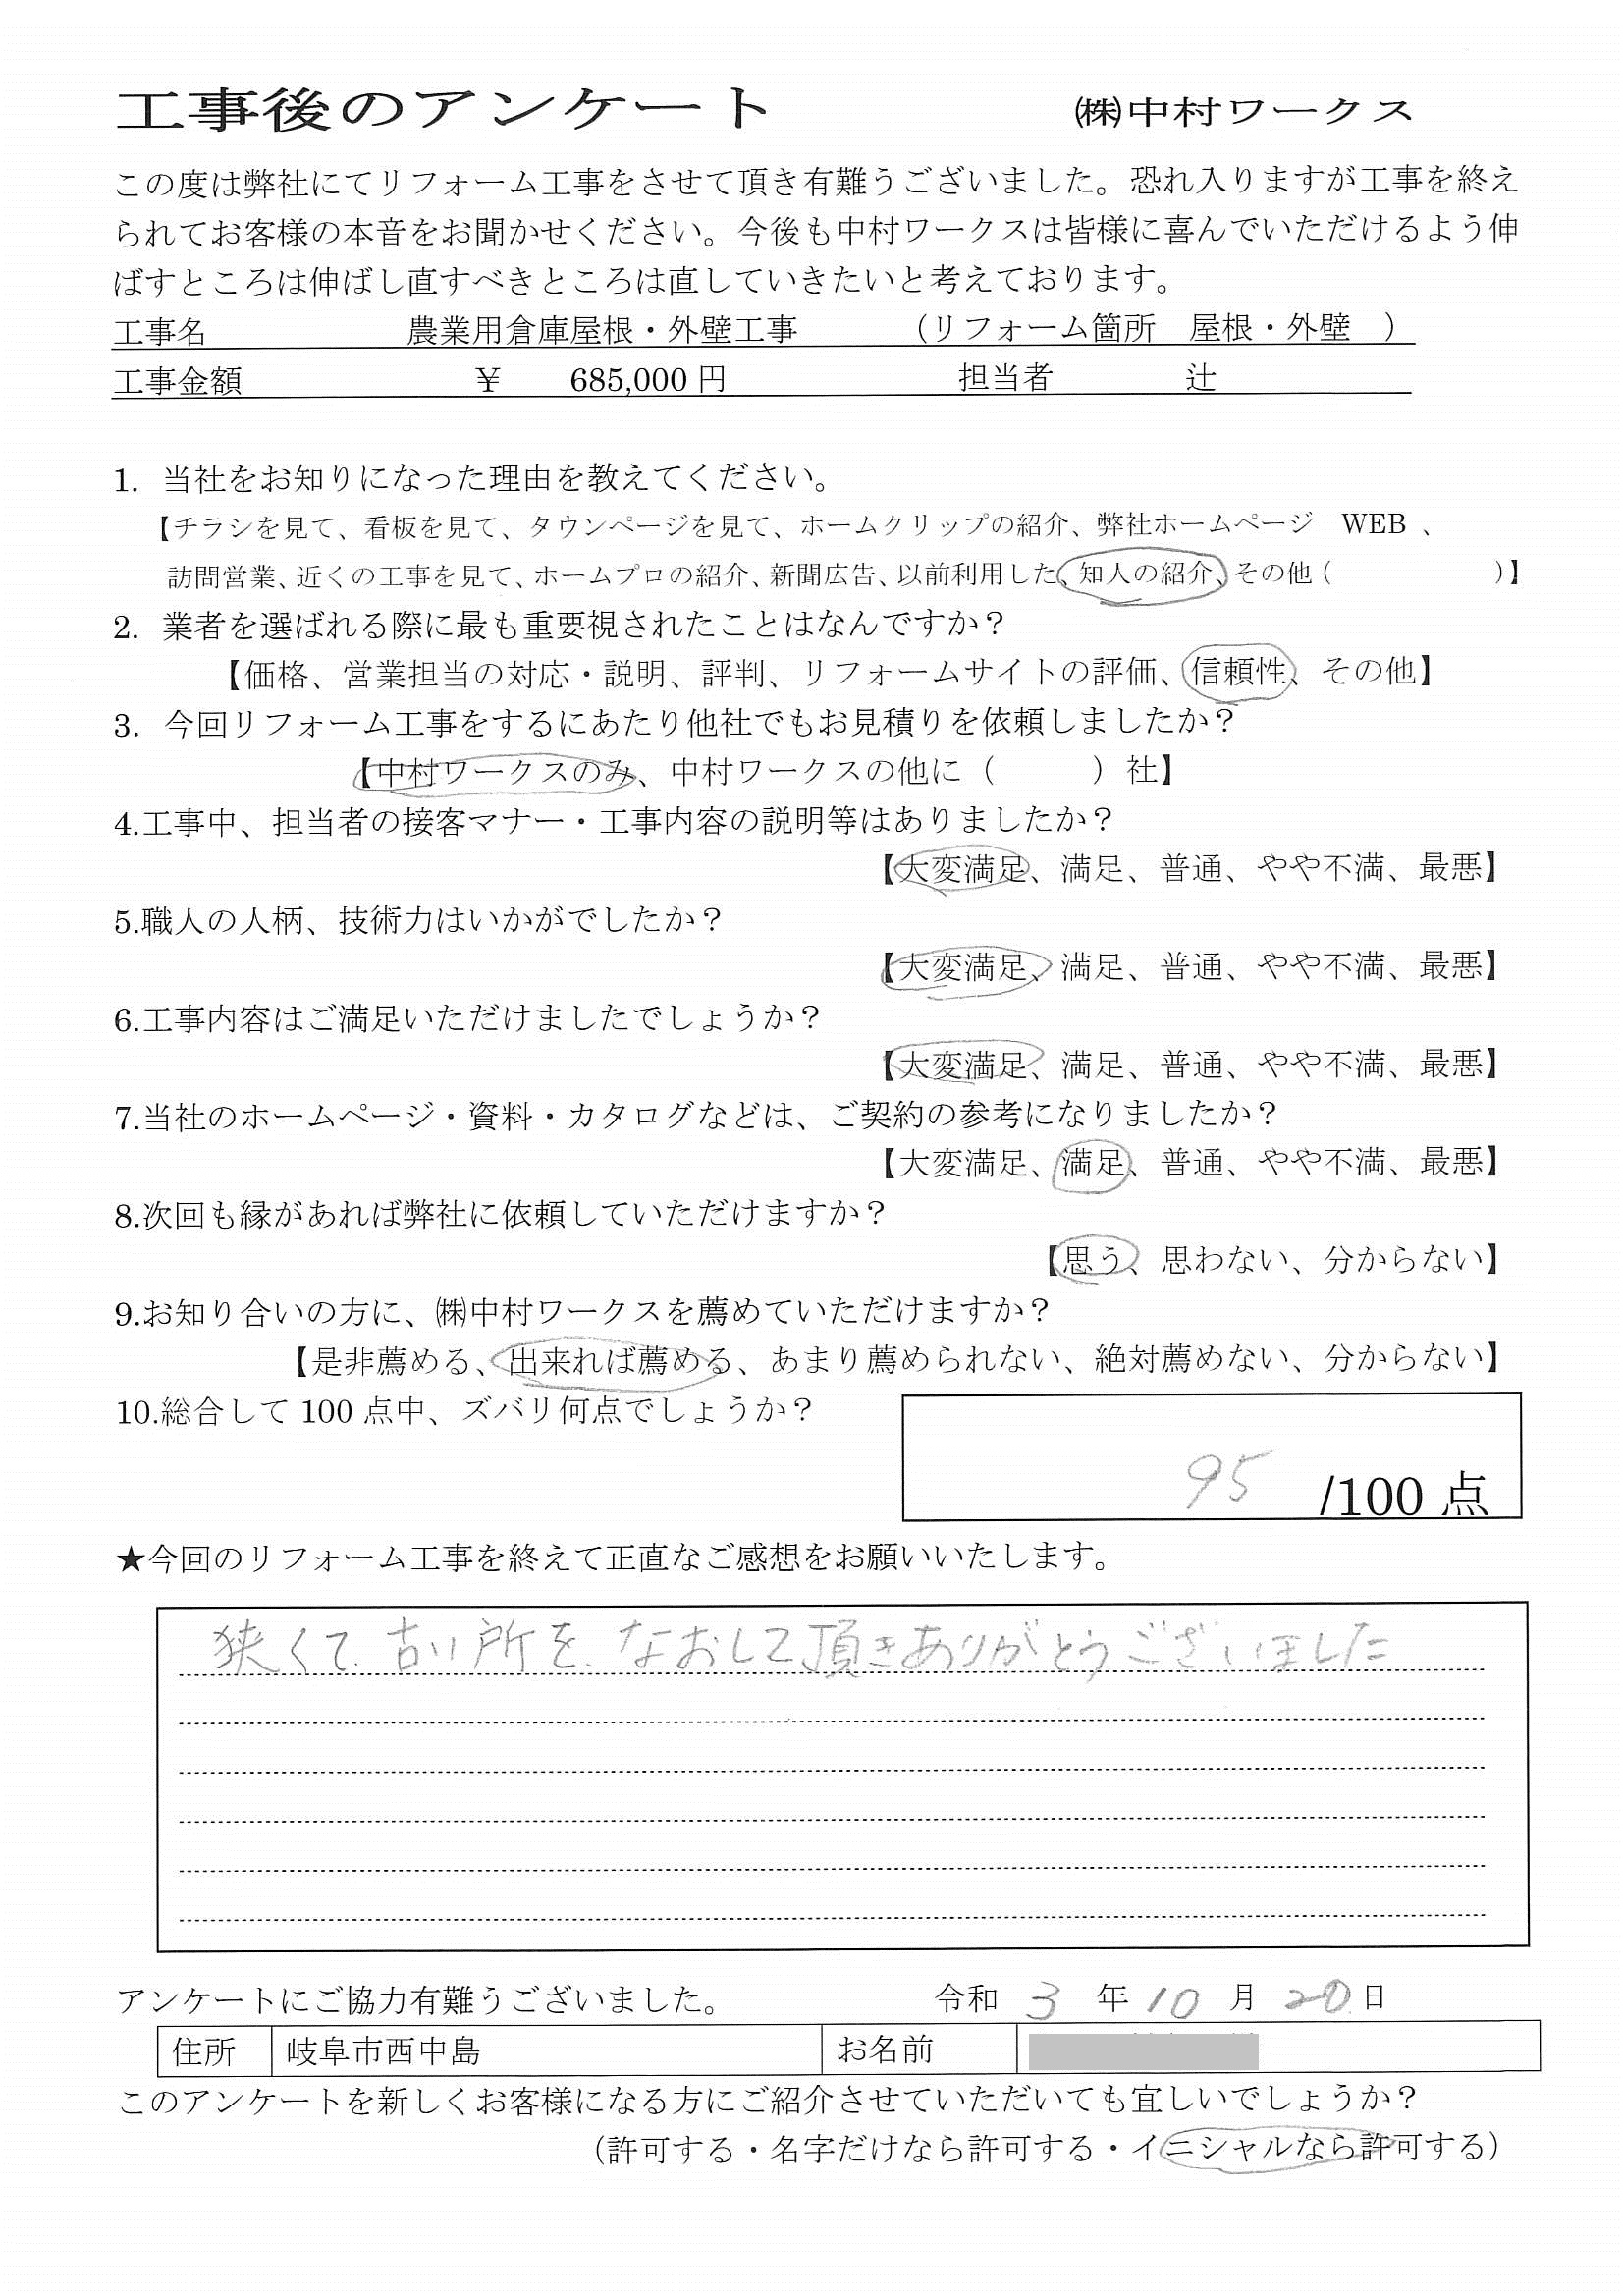 工事後のアンケート ㈱中村ワークス
この度は弊社にてリフォーム工事をさせて頂き有難うございました。恐れ入りますが工事を終え
られてお客様の本音をお聞かせください。今後も中村ワークスは皆様に喜んでいただけるよう伸
ばすところは伸ばし直すべきところは直していきたいと考えております。
工事名 農業用倉庫屋根・外壁工事 （リフォーム箇所 屋根・外壁 ）
工事金額 ￥ 685,000 円 担当者 辻
1. 当社をお知りになった理由を教えてください。
【チラシを見て、看板を見て、タウンページを見て、ホームクリップの紹介、弊社ホームページ WEB 、
訪問営業、近くの工事を見て、ホームプロの紹介、新聞広告、以前利用した、知人の紹介、その他（ ）】
2. 業者を選ばれる際に最も重要視されたことはなんですか？
【価格、営業担当の対応・説明、評判、リフォームサイトの評価、信頼性、その他】
3. 今回リフォーム工事をするにあたり他社でもお見積りを依頼しましたか？
【中村ワークスのみ、中村ワークスの他に（ ）社】
4.工事中、担当者の接客マナー・工事内容の説明等はありましたか？
【大変満足、満足、普通、やや不満、最悪】
5.職人の人柄、技術力はいかがでしたか？
【大変満足、満足、普通、やや不満、最悪】
6.工事内容はご満足いただけましたでしょうか？
【大変満足、満足、普通、やや不満、最悪】
7.当社のホームページ・資料・カタログなどは、ご契約の参考になりましたか？
【大変満足、満足、普通、やや不満、最悪】
8.次回も縁があれば弊社に依頼していただけますか？
【思う、思わない、分からない】
9.お知り合いの方に、㈱中村ワークスを薦めていただけますか？
【是非薦める、出来れば薦める、あまり薦められない、絶対薦めない、分からない】
10.総合して 100 点中、ズバリ何点でしょうか？
95 /100 点
★今回のリフォーム工事を終えて正直なご感想をお願いいたします。
狭くて、古い所を、なおして頂きありがとうございました
アンケートにご協力有難うございました。 令和 3 年 10 月 20 日
住所 岐阜市西中島 お名前
このアンケートを新しくお客様になる方にご紹介させていただいても宜しいでしょうか？
（許可する・名字だけなら許可する・イニシャルなら許可する）